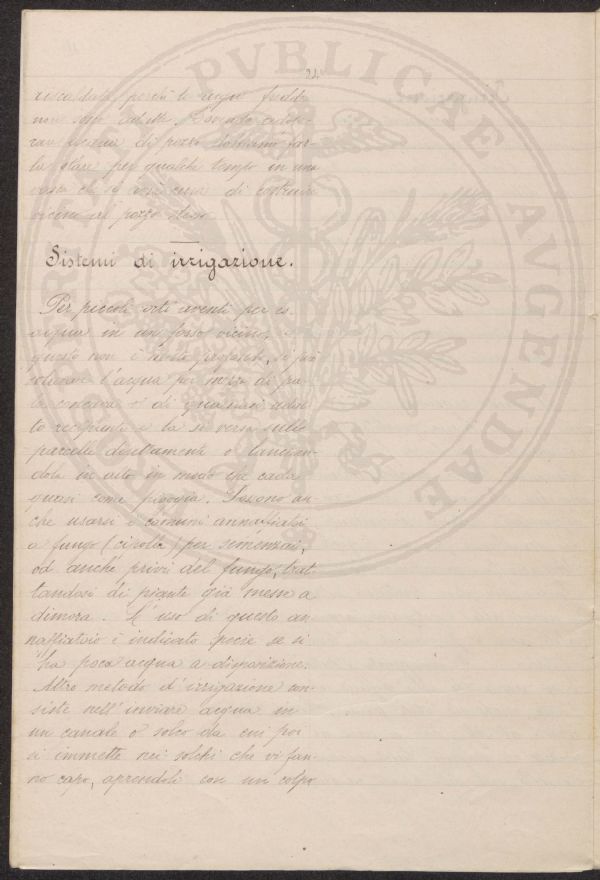 24
riscaldata, perchè le acque fredde
non sono adatte. Dovendo adope-
rare acqua di pozzo dovremo far-
la stare per qualche tempo in una
vasca che si avrà cura di costruire
vicino al pozzo stesso
Sistemi di irrigazione.
Per piccoli orti aventi per es.
acqua in un fosso vicino,
questo non è molto profondo, si può
sollevare l'acqua per mezzo di pa-
la concava o di qualsiasi adat-
to recipiente e la si versa sulle
parcelle direttamente o lancian-
dola in alto in modo che cada
quasi come pioggia. Possono an-
che usarsi i comuni annaffiatoi
a fungo (cipolla) per semenzai,
od anche privi del fungo, trat
tandosi di piante già messe a
dimora. L'uso di questo an
naffiatoio è indicato specie se si
ha poca acqua a disposizione.
Altro metodo d'irrigazione con-
siste nell'inviare acqua in
un canale o solco da cui poi
si immette nei solchi che vi fan-
no capo, aprendoli con un colpo
PVBLICAE AVGENDAE